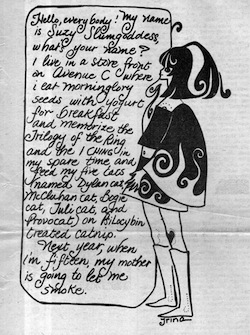 Hello, everybody! My name
is Suzy Slumgoddess,
what's your name?
I live in a store front
on Avenue C where
i eat morninglory
seeds with yogurt
for breakfast
and memorize the
Trilogy of the Ring
and the I CHING in
my spare time, and
feed my five cats
(named Dylancat,
McLuhan cat, Bogie
cat, Juli cat, and
Provocat) on Psilocybin
treated catnip.
Next year, when
i'm fifteen, my mother
is going to let me
smoke.
Trina